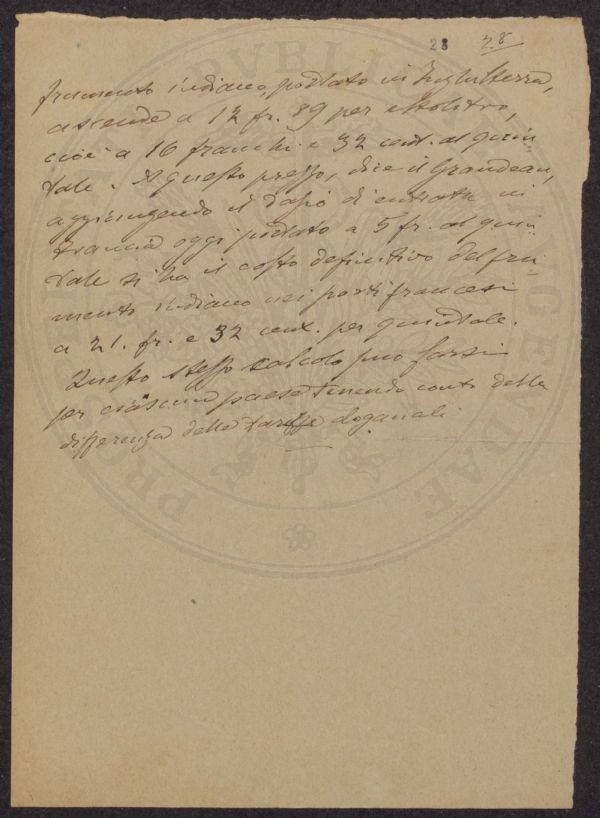 28 28
frumento indiano, portato in Inghilterra,
ascende a 12 fr. 89 per ettolitro,
cioè a 16 franchi e 32 cent. al quin-
tale. A questo prezzo, dice il Grandeau,
aggiungendo il dazio d'entrata in
Francia oggi portato a 5 fr. al quin-
tale si ha il costo definitivo del fru-
mento indiano nei porti francesi
a 21. fr. e 32 cent. per quintale.
Questo stesso calcolo può farsi
per ciascun paese tenendo conto della
differenza delle tariffe doganali